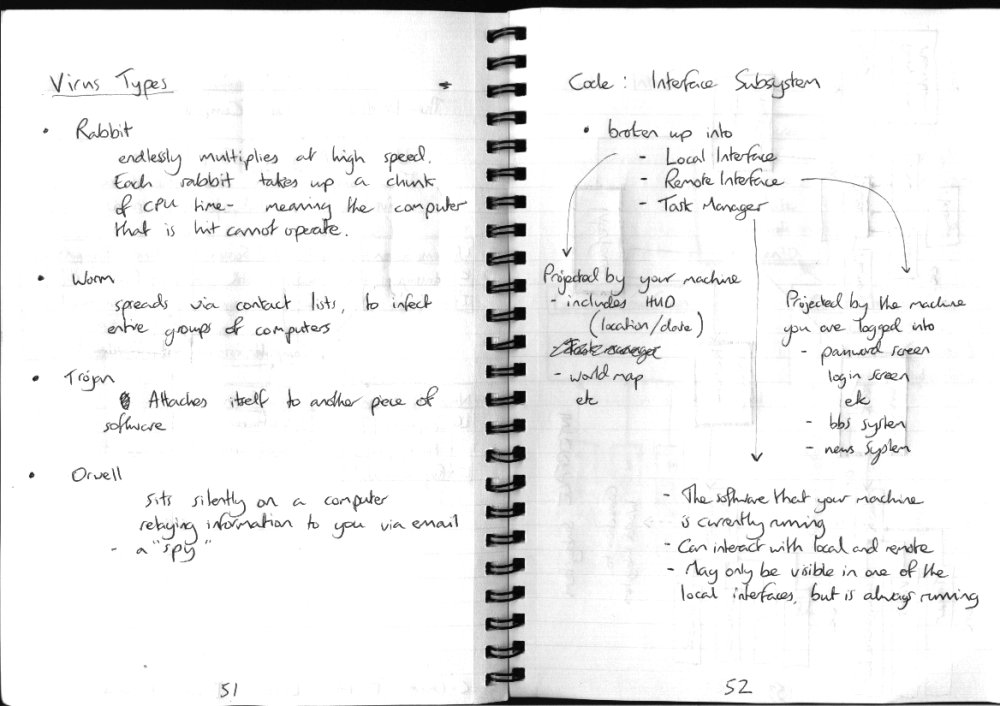 Virus Types
• Rabbit
endlessly multiplies at high speed.
Each rabbit takes up a chunk
of CPU time - meaning the computer
that is hit cannot operate.
• Worm
spreads via contact lists, to infect
entire groups of computers
• Trojan
Attaches itself to another piece of
software
• Orwell
sits silently on a computer
relaying information to you via email
- a "spy"
51
Code : Interface Subsystem
• broken up into
- Local Interface
- Remote Interface
- Task Manager
Projected by your machine
- includes HUD
(location/date)
- world map
etc
Projected by the machine
you are logged into
- password screen
login screen
etc
- bbs system
- news system
- The software that your machine
is currently running
- Can interact with local and remote
- May only be visible in one of the
local interfaces, but is always running
52